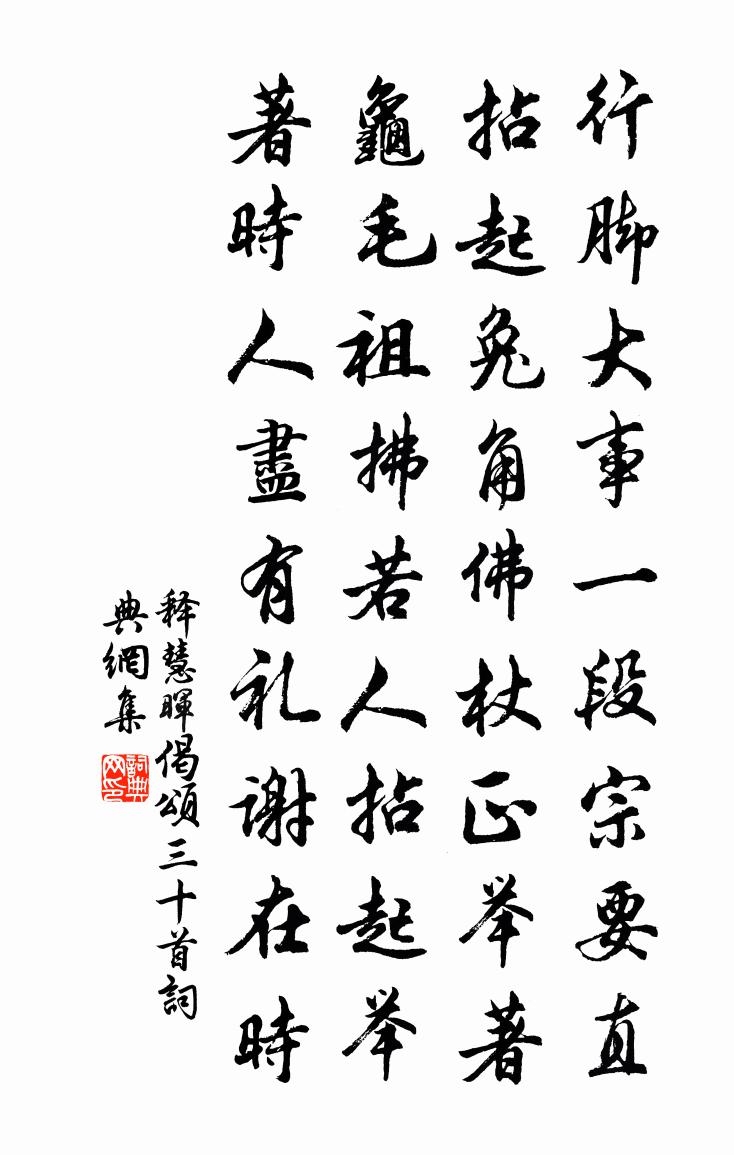 行脚大事一段宗要直
拈起兔角佛杖正举著
龜毛祖拂若人拈起举
著時人盡有礼谢在時
释慧暉偈頌三十首詞
典網集
詞典网印